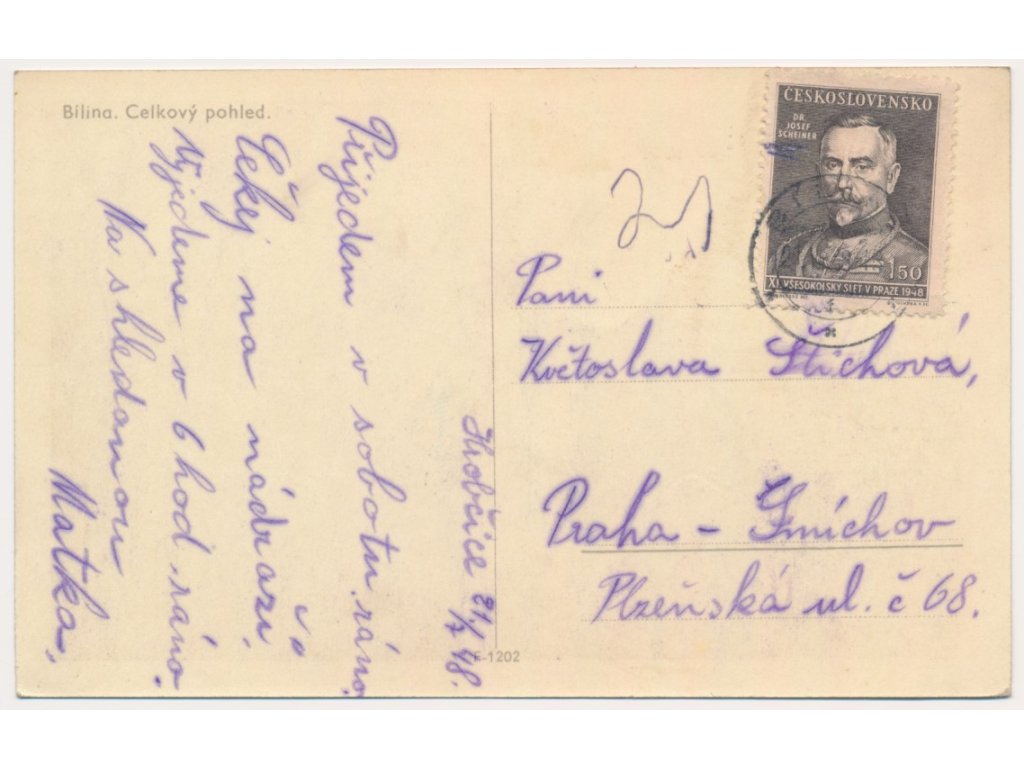 Bílina. Celkový pohled.
Hrobčice 21/7 48.
Přijedem v sobotu ráno.
Čekej na nádraží.
Vyjedeme v 6 hod. ráno.
Na shledanou
Matka.
ČESKOSLOVENSKO
DR.
JOSEF
SCHEINER
1.50
XI. VŠESOKOLSKÝ SLET V PRAZE 1948
Paní
Květoslava Štichová,
Praha – Smíchov
Plzeňská ul. č 68.
F-1202